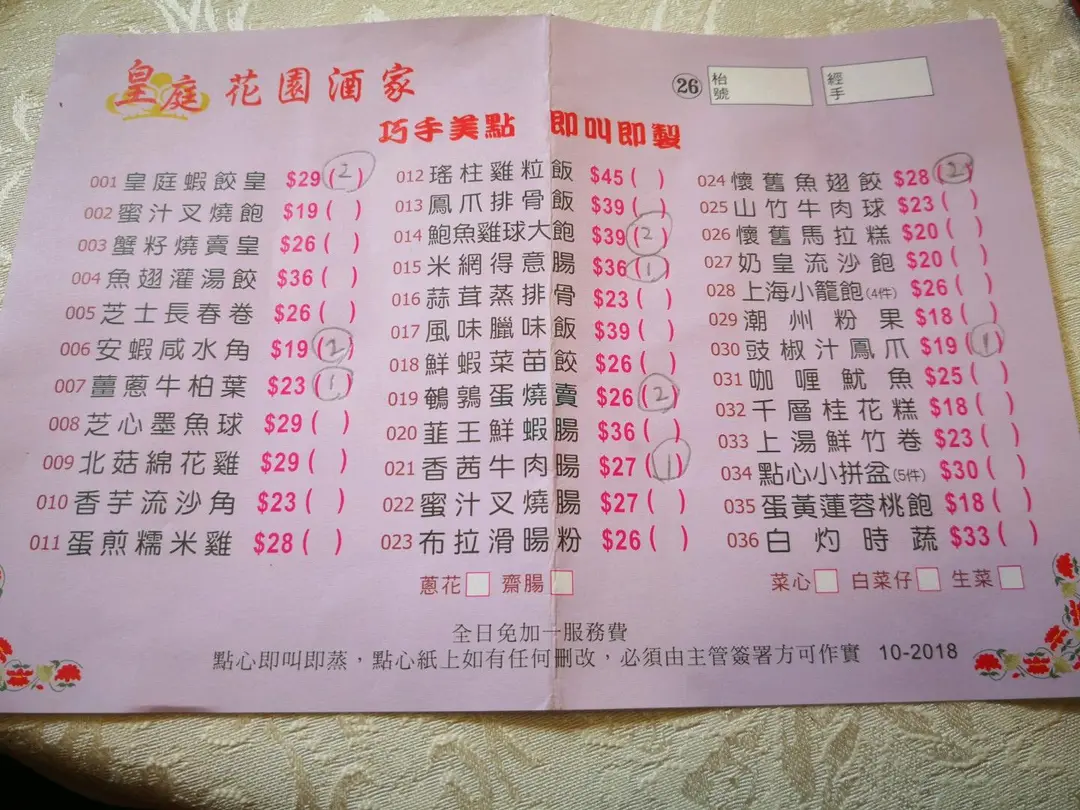 皇庭花園酒家
㉖ 枱號 經手
巧手美點 即叫即製
001 皇庭蝦餃皇 $29 (2)
002 蜜汁叉燒飽 $19 ( )
003 蟹籽燒賣皇 $26 ( )
004 魚翅灌湯餃 $36 ( )
005 芝士長春卷 $26 ( )
006 安蝦咸水角 $19 (2)
007 薑蔥牛柏葉 $23 (1)
008 芝心墨魚球 $29 ( )
009 北菇綿花雞 $29 ( )
010 香芋流沙角 $23 ( )
011 蛋煎糯米雞 $28 ( )
012 瑤柱雞粒飯 $45 ( )
013 鳳爪排骨飯 $39 ( )
014 鮑魚雞球大飽 $39 (2)
015 米網得意腸 $36 (1)
016 蒜茸蒸排骨 $23 ( )
017 風味臘味飯 $39 ( )
018 鮮蝦菜苗餃 $26 ( )
019 鵪鶉蛋燒賣 $26 (2)
020 韮王鮮蝦腸 $36 ( )
021 香茜牛肉腸 $27 (1)
022 蜜汁叉燒腸 $27 ( )
023 布拉滑腸粉 $26 ( )
蔥花 齋腸
024 懷舊魚翅餃 $28 (2)
025 山竹牛肉球 $23 ( )
026 懷舊馬拉糕 $20 ( )
027 奶皇流沙飽 $20 ( )
028 上海小籠飽(4件) $26 ( )
029 潮州粉果 $18 ( )
030 豉椒汁鳳爪 $19 (1)
031 咖喱魷魚 $25 ( )
032 千層桂花糕 $18 ( )
033 上湯鮮竹卷 $23 ( )
034 點心小拼盆(5件) $30 ( )
035 蛋黃蓮蓉桃飽 $18 ( )
036 白灼時蔬 $33 ( )
菜心 白菜仔 生菜
全日免加一服務費
點心即叫即蒸，點心紙上如有任何刪改，必須由主管簽署方可作實 10-2018